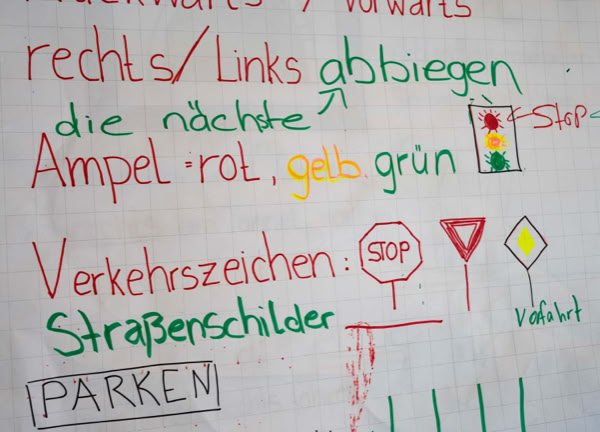 rückwärts / vorwärts
rechts/Links abbiegen
die nächste
Ampel = rot, gelb. grün
Stop
Verkehrszeichen:
STOP
Vofahrt
Straßenschilder
PARKEN